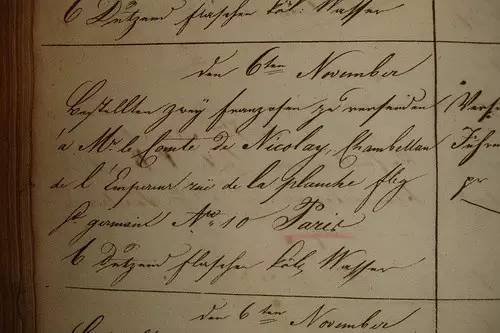 6 Dutzend flaschen köl: Wasser
den 6ten November
Bestellten zwey franzosen pr versenden
á Mr. le Comte de Nicolay, Chambellan
de l'Empereur rue de la planche fbg
St germain Nro 10 Paris
6 Dutzend flaschen köl: Wasser
den 6ten November